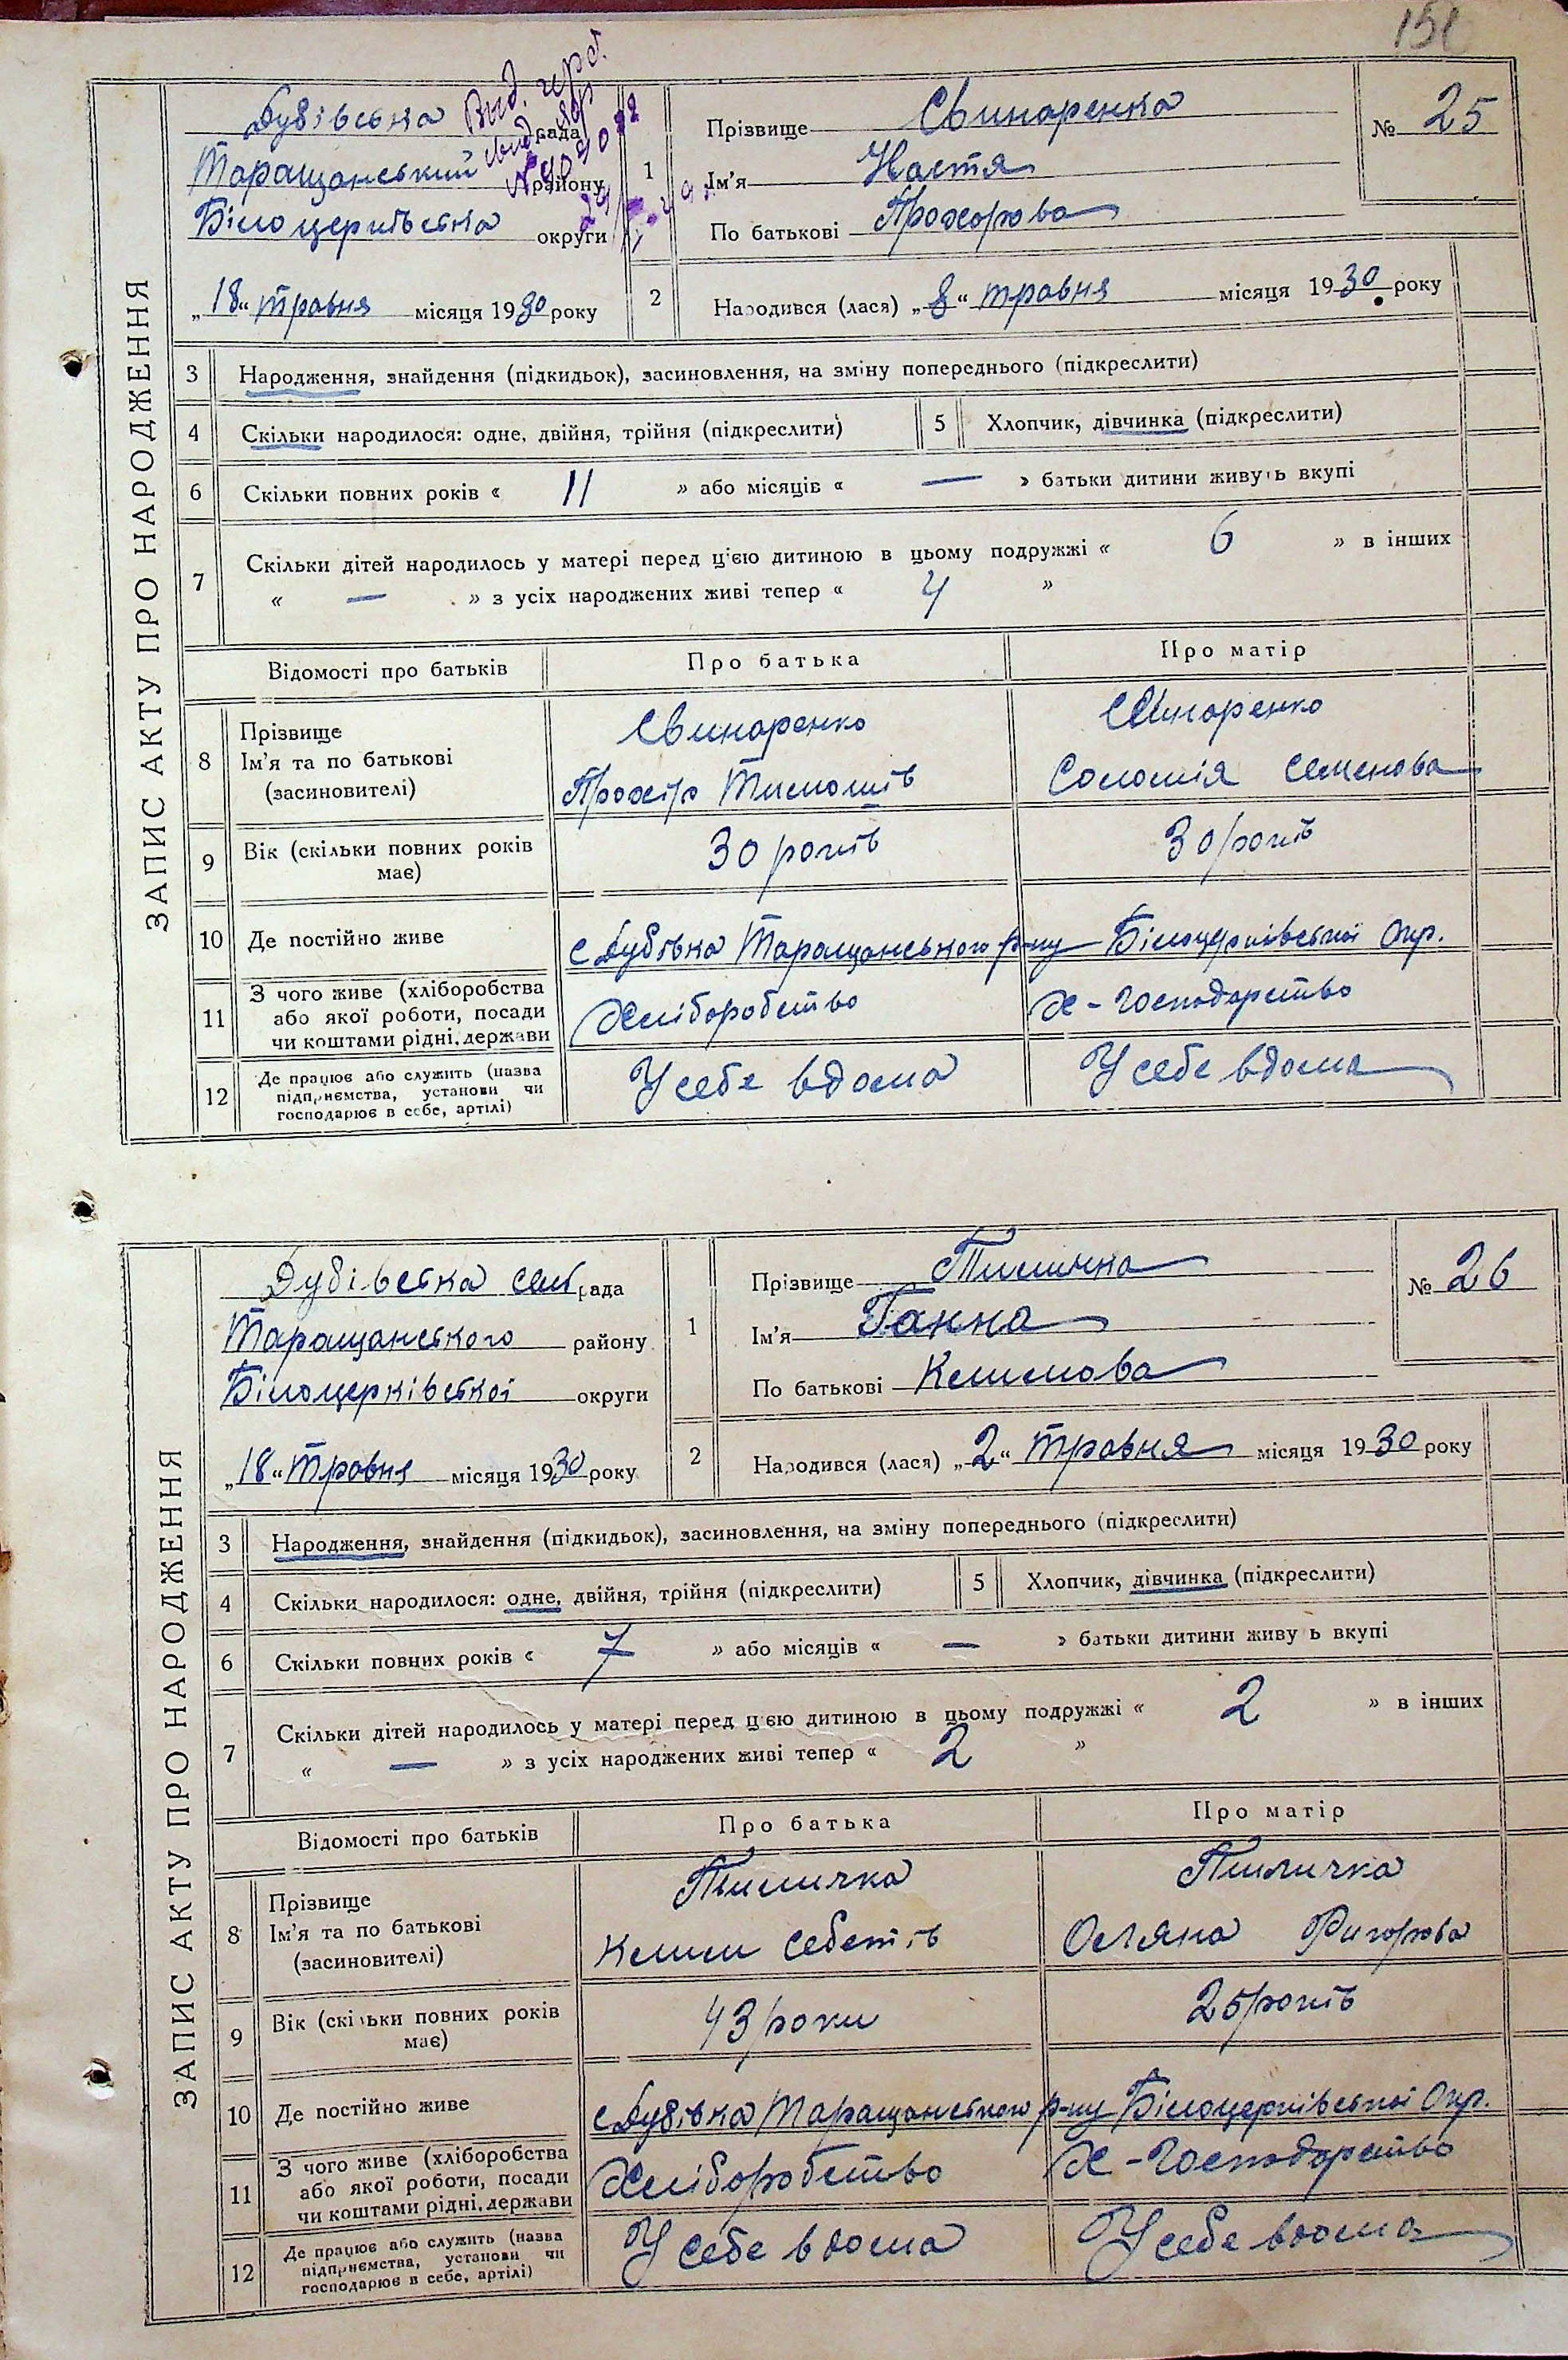 151
ЗАПИС АКТУ ПРО НАРОДЖЕННЯ
Дубівська рада
Таращанський району
Білоцерківська округи
„18“ травня місяця 1930 року
Вид. свид.
1 Прізвище Свинаренка
Ім'я Настя
По батькові Прохорова
№ 25
2 Народився (лася) „8“ травня місяця 1930 року
3 Народження, знайдення (підкидьок), засиновлення, на зміну попереднього (підкреслити)
4 Скільки народилося: одне, двійня, трійня (підкреслити) 5 Хлопчик, дівчинка (підкреслити)
6 Скільки повних років « 11 » або місяців « — » батьки дитини живуть вкупі
7 Скільки дітей народилось у матері перед цією дитиною в цьому подружжі « 6 » в інших
« — » з усіх народжених живі тепер « 4 »
Відомості про батьків Про батька Про матір
8 Прізвище
Ім'я та по батькові
(засиновителі)
Свинаренко
Прохір Тимошів
Свинаренко
Соломія Семенова
9 Вік (скільки повних років
має)
30 років 30 років
10 Де постійно живе с Дубівка Таращанського р-ну Білоцерківської Окр.
11 З чого живе (хліборобства
або якої роботи, посади
чи коштами рідні, держави
Хліборобство Х-господарство
12 Де працює або служить (назва
підприємства, установи чи
господарює в себе, артілі)
У себе вдома У себе вдома
ЗАПИС АКТУ ПРО НАРОДЖЕННЯ
Дубівська сел рада
Таращанського району
Білоцерківської округи
„18“ травня місяця 1930 року
1 Прізвище Тиличка
Ім'я Ганна
По батькові Климова
№ 26
2 Народився (лася) „2“ травня місяця 1930 року
3 Народження, знайдення (підкидьок), засиновлення, на зміну попереднього (підкреслити)
4 Скільки народилося: одне, двійня, трійня (підкреслити) 5 Хлопчик, дівчинка (підкреслити)
6 Скільки повних років « 7 » або місяців « — » батьки дитини живу ь вкупі
7 Скільки дітей народилось у матері перед цією дитиною в цьому подружжі « 2 » в інших
« — » з усіх народжених живі тепер « 2 »
Відомості про батьків Про батька Про матір
8 Прізвище
Ім'я та по батькові
(засиновителі)
Тиличка
Клим
Тиличка
Оляна Григорова
9 Вік (скільки повних років
має)
43 роки 25 років
10 Де постійно живе с Дубівка Таращанського р-ну Білоцерківської Окр.
11 З чого живе (хліборобства
або якої роботи, посади
чи коштами рідні, держави
Хліборобство Х-господарство
12 Де працює або служить (назва
підприємства, установи чи
господарює в себе, артілі)
У себе вдома У себе вдома